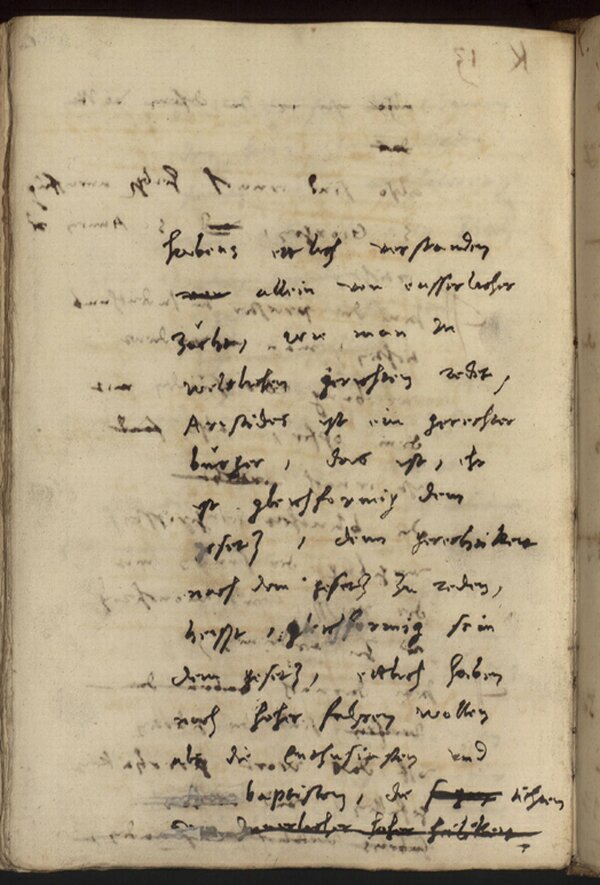 K 13
habens ettlich verstanden
allein von eusserlicher
zucht, wie man in
weltlichen gerichten redet,
Aristides ist ein gerechter
bürger, das ist, ehr
ist gleichformig dem
gesetz, denn gerechtikeit
nach dem gesetz zu reden,
heisst, gleichformig sein
dem gesetz, ettlich haben
noch hoher fahren wollen
als die Enthusiasten und
baptisten, die tichten